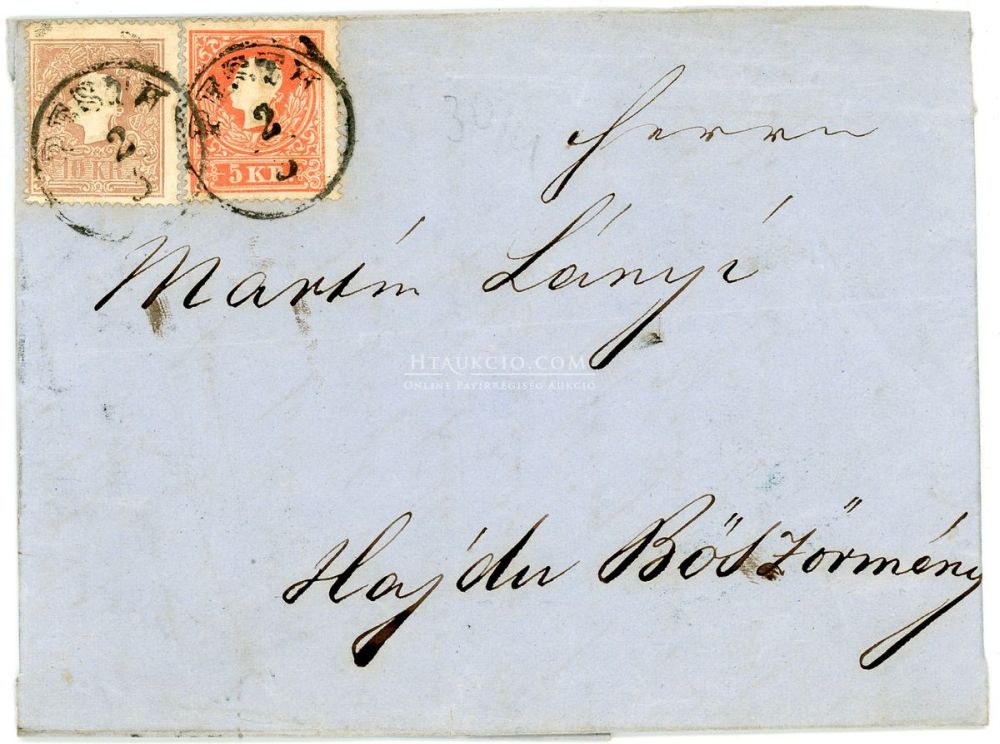 PESTH
2
5
10 KR.
PESTH
2
5
5 KR.
Herrn
Martin Lányi
HTAUKCIO.COM
ONLINE PAPÍRRÉGISÉG AUKCIÓ
Hajdu Böszörmény